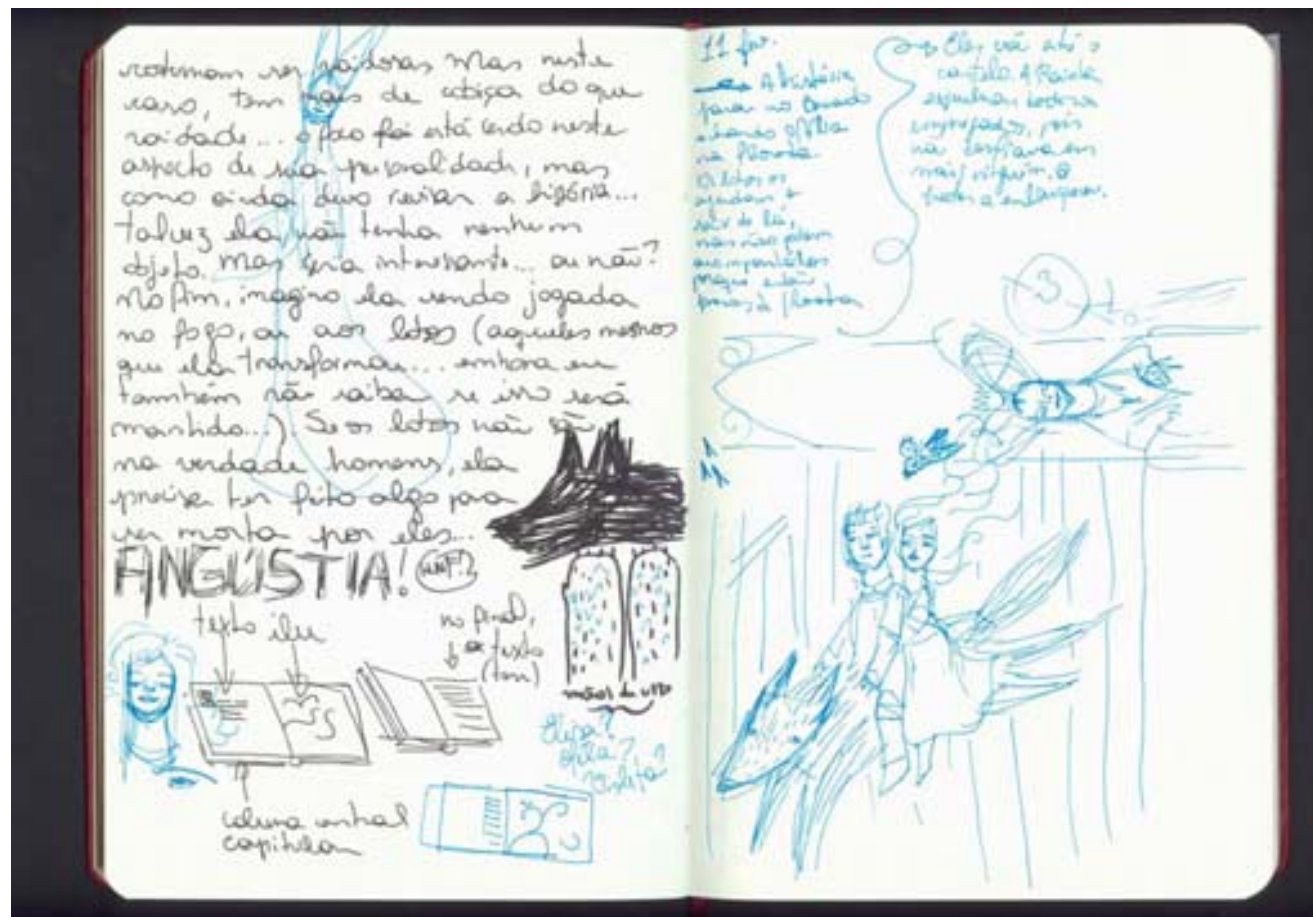 costumam ser vaidosas mas neste
caso, tem mais de cobiça do que
vaidade... o foco foi
aspecto de sua personalidade, mas
como ainda devo revisar a história...
talvez ela não tenha nenhum
objeto. Mas seria interessante... ou não?
No fim, imagino ela sendo jogada
no fogo, ou aos lobos (aqueles mesmos
que ela transformou... embora eu
também não saiba se isso será
mantido...) Se os lobos não são
na verdade homens, ela
precisa ter feito algo para
ser morta por eles...
ANGÚSTIA!
texto ilus
no final,
texto
coluna central
capitular
Elisa?
11 fev.
A história
para no
na floresta
Os lobos os
ajudam a
sair de lá,
mas não podem
acompanhá-los
porque estão
presos à floresta
Eles vão até o
castelo. A Rainha
todos os
empregados, pois
não confiava em
mais ninguém.
3